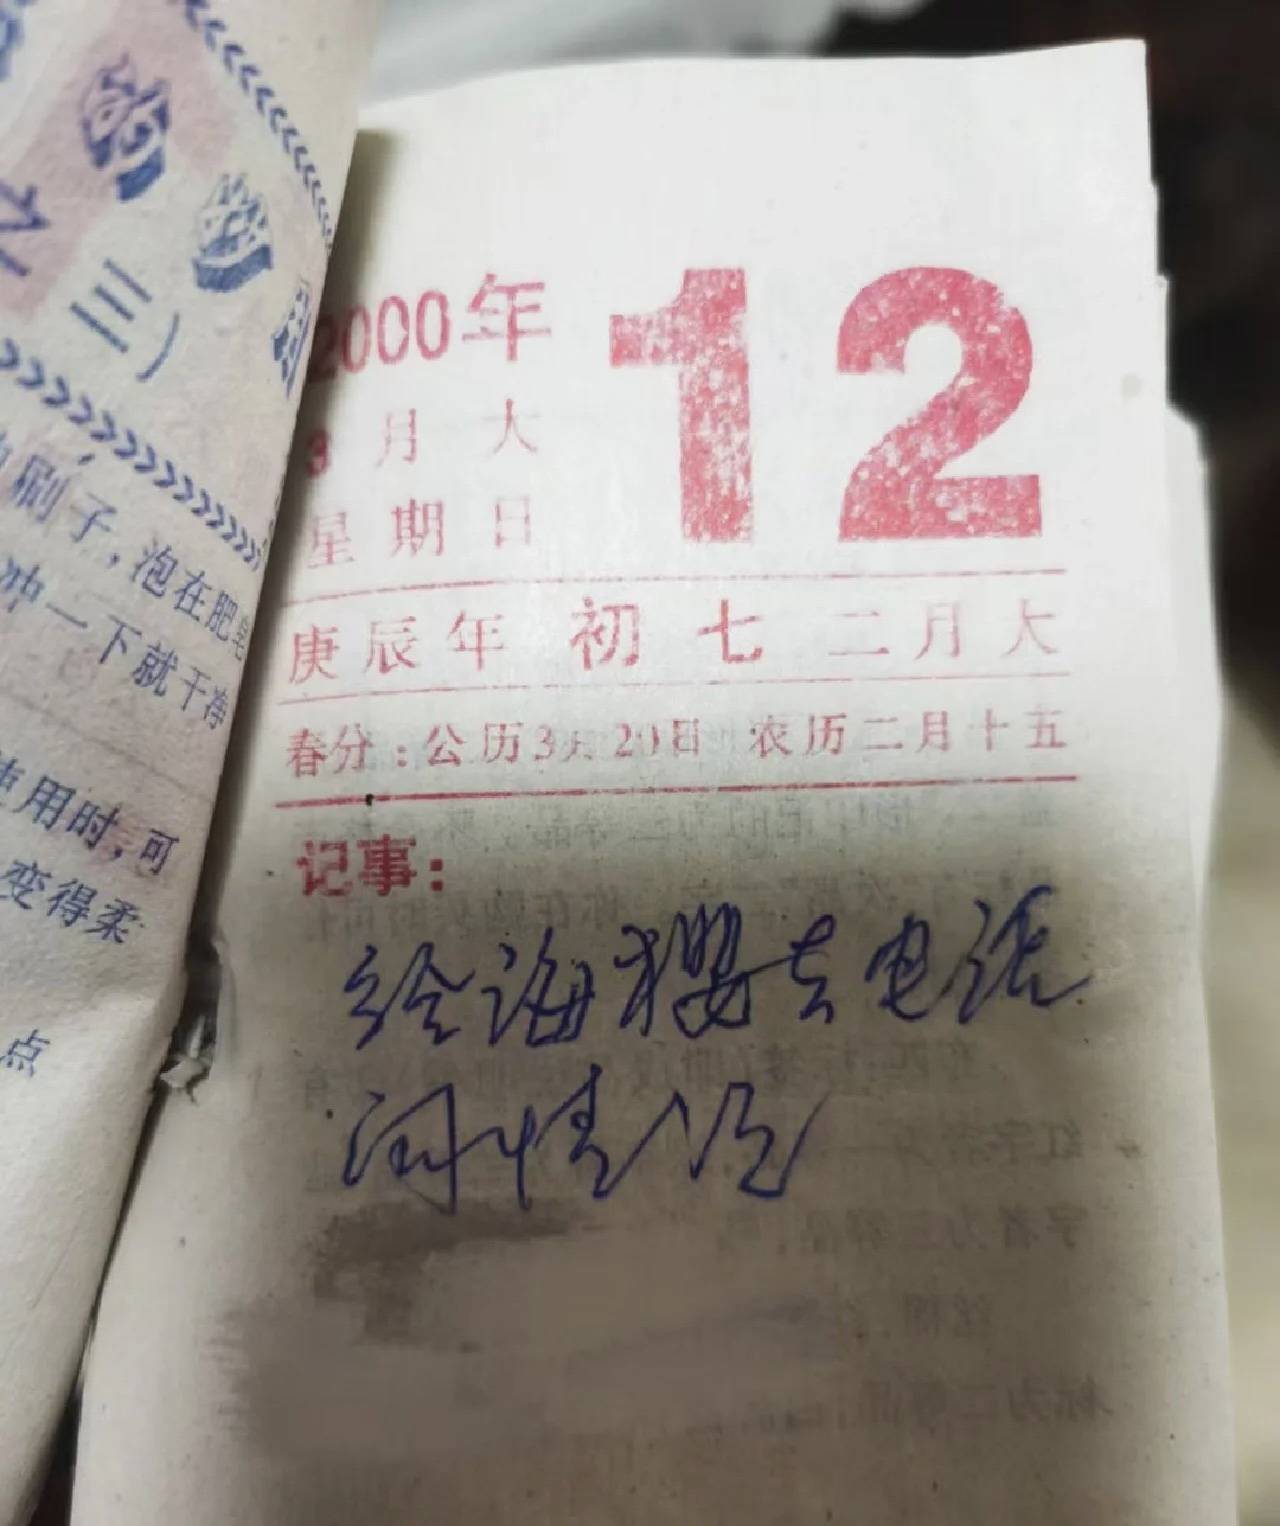 的
之三)
刷子，泡在肥皂
冲一下就干净
使用时，可
变得柔
点
2000年
12
3月大
星期日
庚辰年 初七 二月大
春分：公历3月20日 农历二月十五
记事：
给海樱去电话
问情况